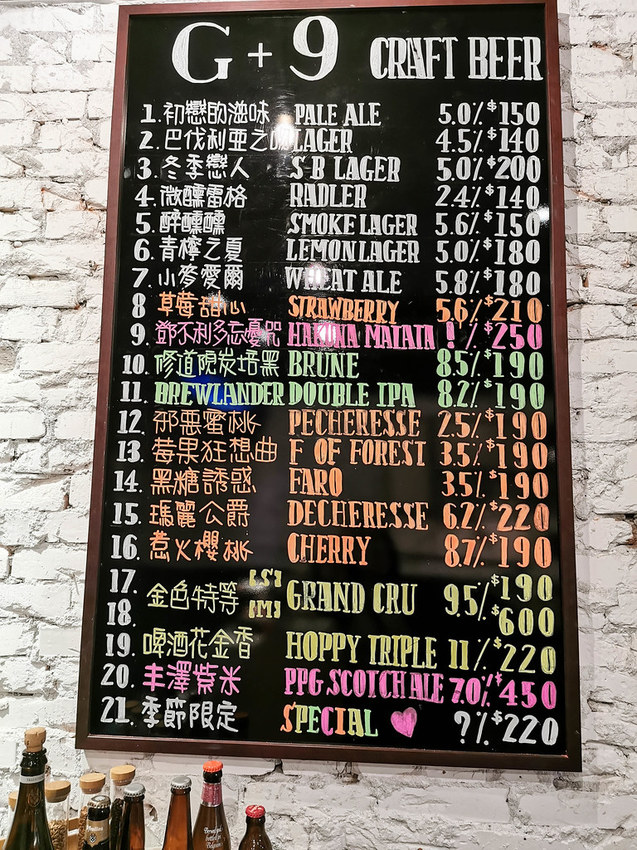 G+9 CRAFT BEER
1. 初戀的滋味 PALE ALE 5.0% $150
2. 巴伐利亞之 LAGER 4.5% $140
3. 冬季戀人 S B LAGER 5.0% $200
4. 微醺雷格 RADLER 2.4% $140
5. 醉醺醺 SMOKE LAGER 5.6% $150
6. 青檸之夏 LEMON LAGER 5.0% $180
7. 小麥愛爾 WHEAT ALE 5.8% $180
8 草莓甜心 STRAWBERRY 5.6% $210
9. 鄧不利多忘憂咒 HAKUNA MATATA ! % $250
10. 修道院炭培黑 BRUNE 8.5% $190
11. BREWLANDER DOUBLE IPA 8.2% $190
12. 邪惡蜜桃 PECHERESSE 2.5% $190
13. 莓果狂想曲 F OF FOREST 3.5% $190
14. 黑糖誘惑 FARO 3.5% $190
15. 瑪麗公爵 DECHERESSE 6.2% $220
16. 惹火櫻桃 CHERRY 8.7% $190
17. 金色特等 [S] GRAND CRU 9.5% $190
18. [M] $600
19. 啤酒花金香 HOPPY TRIPLE 11% $220
20. 丰澤紫米 PPG SCOTCH ALE 7.0% $450
21. 季節限定 SPECIAL ?% $220